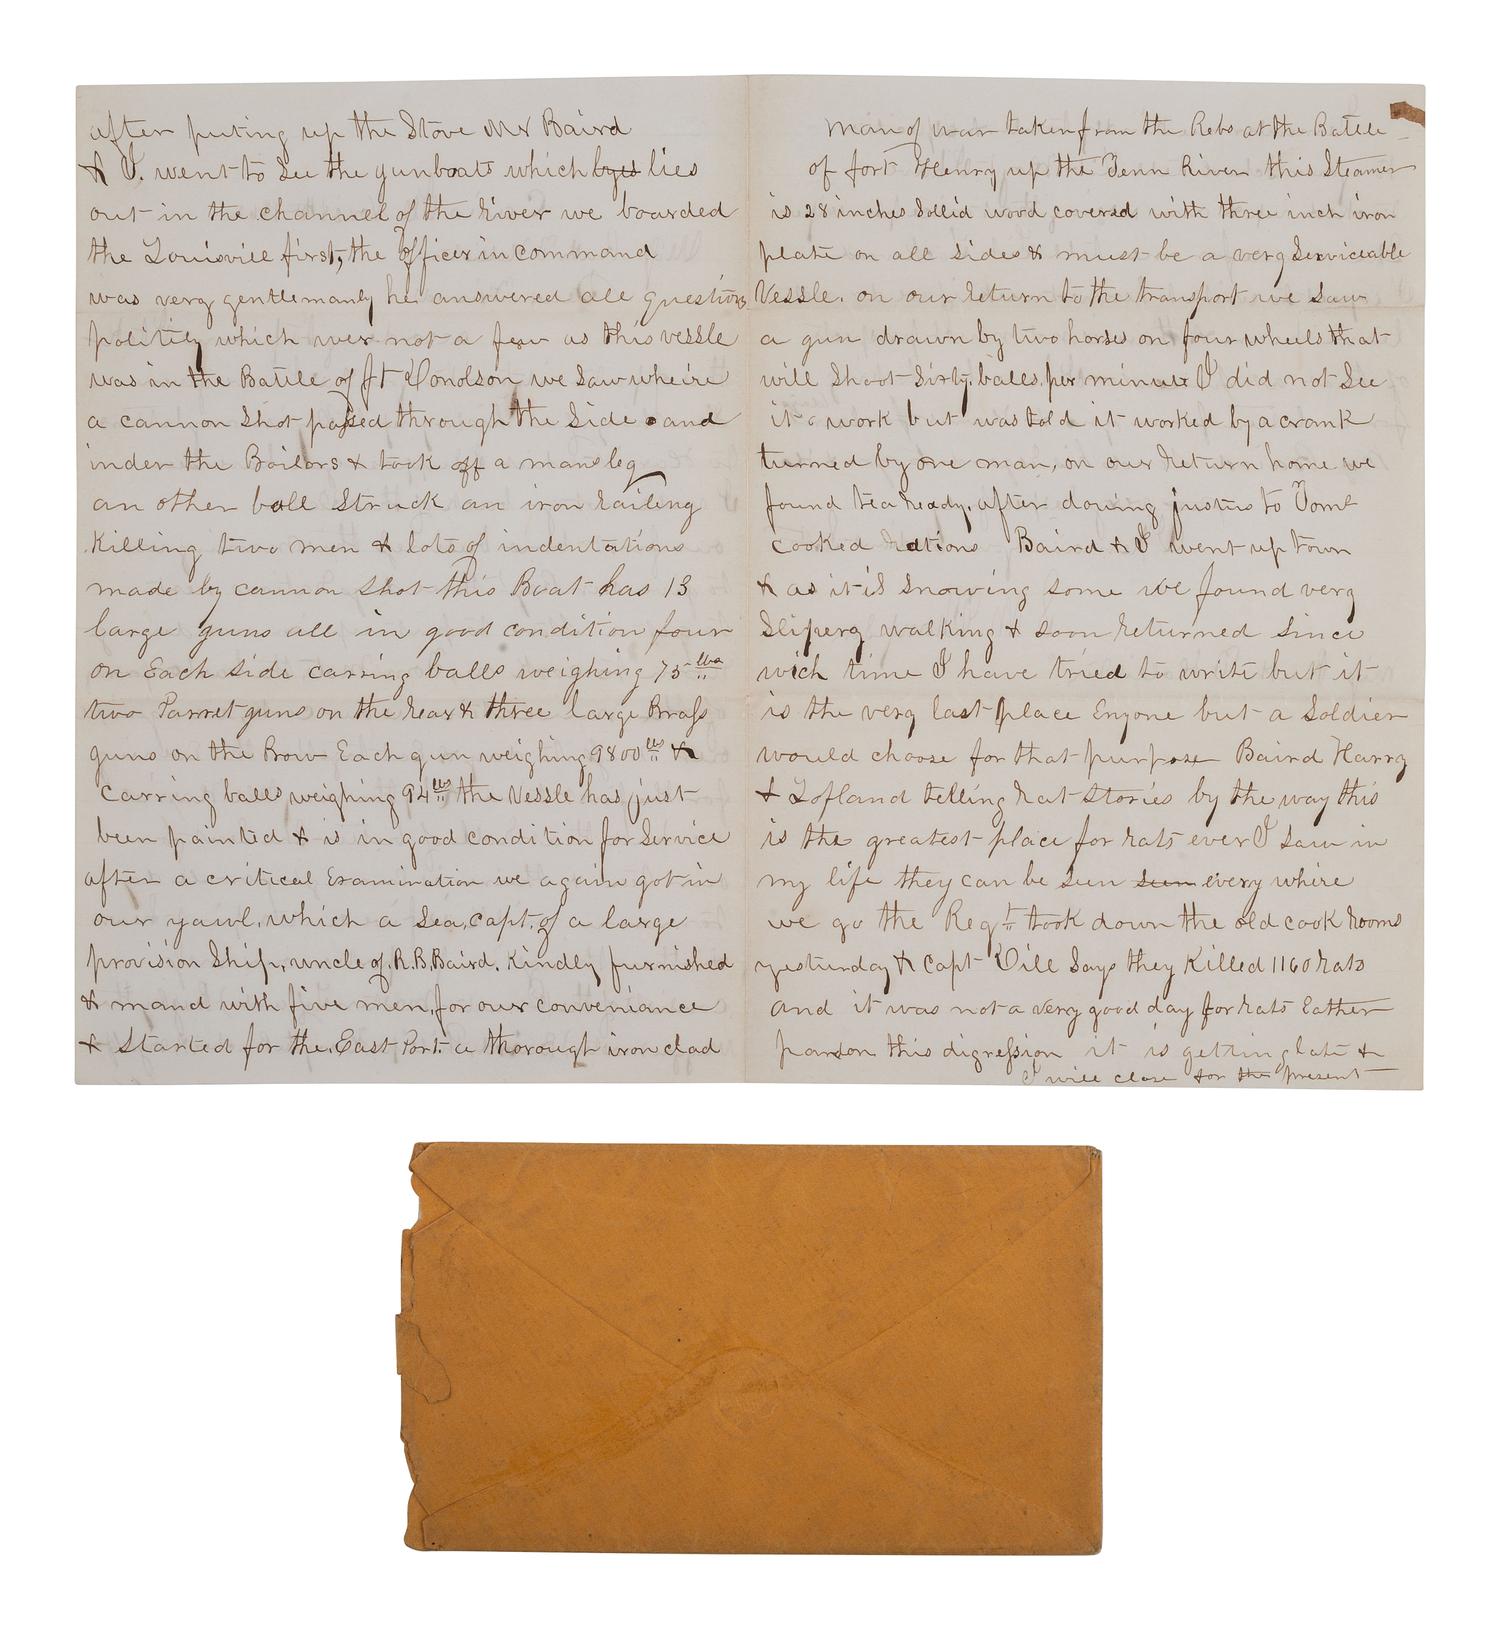 after puting up the Stove Mr Baird
& I. went to See the gunboats which lies
out in the channel of the River we boarded
the Louisvill first, the officer in command
was very gentlemanly he answered all questions
politily which wer not a few as this vessle
was in the Batile of ft Donolson we Saw wheire
a cannon Shot passed through the Side and
inder the Boilors & took off a mans leg
an other ball Struck an iron railing
Killing two men & lots of indentations
made by cannon shot this Boat has 13
large guns all in good condition four
on Each side carring balls weighing 75 lbs
two Parret guns on the rear & three large Brass
guns on the Brow Each gun weighing 9800 lbs &
Carring balls weighing 94 lbs the Vessle has just
been painted & is in good condition for Service
after a critical Examination we again got in
our yawl, which a Sea, capt. of a large
provision Ship, uncle of, R.B. Baird. Kindly furnished
& mand with five men, for our conveniance
& Started for the, East Port. a thorough iron clad
man of war taken from the Rebs at the Batile
of fort Henry up the Tenn River this Steamer
is 28 inches Sollid wood covered with three inch iron
plate on all Sides & must be a very Serviceable
Vessle. on our return to the transport we Saw
a gun drawn by two horses on four wheels that
will Shoot Sixty balls, per minute I did not See
it work but was told it worked by a crank
turned by one man, on our return home we
found tea ready, after doing justis to Toms
cooked rations Baird & I went up town
& as it is Snowing some we found very
Slipery walking & soon returned since
wich time I have tried to write but it
is the very last place Enyone but a Soldier
would choose for that purpose Baird Harry
& Lofland telling rat Stories by the way this
is the greatest place for rats ever I Saw in
my life they can be Seen seen every where
we go the Regt took down the old cook rooms
yesturday & Capt Dill Says they Killed 1160 rats
and it was not a very good day for rats Eather
pardon this digression it is getting late &
I will close for the present